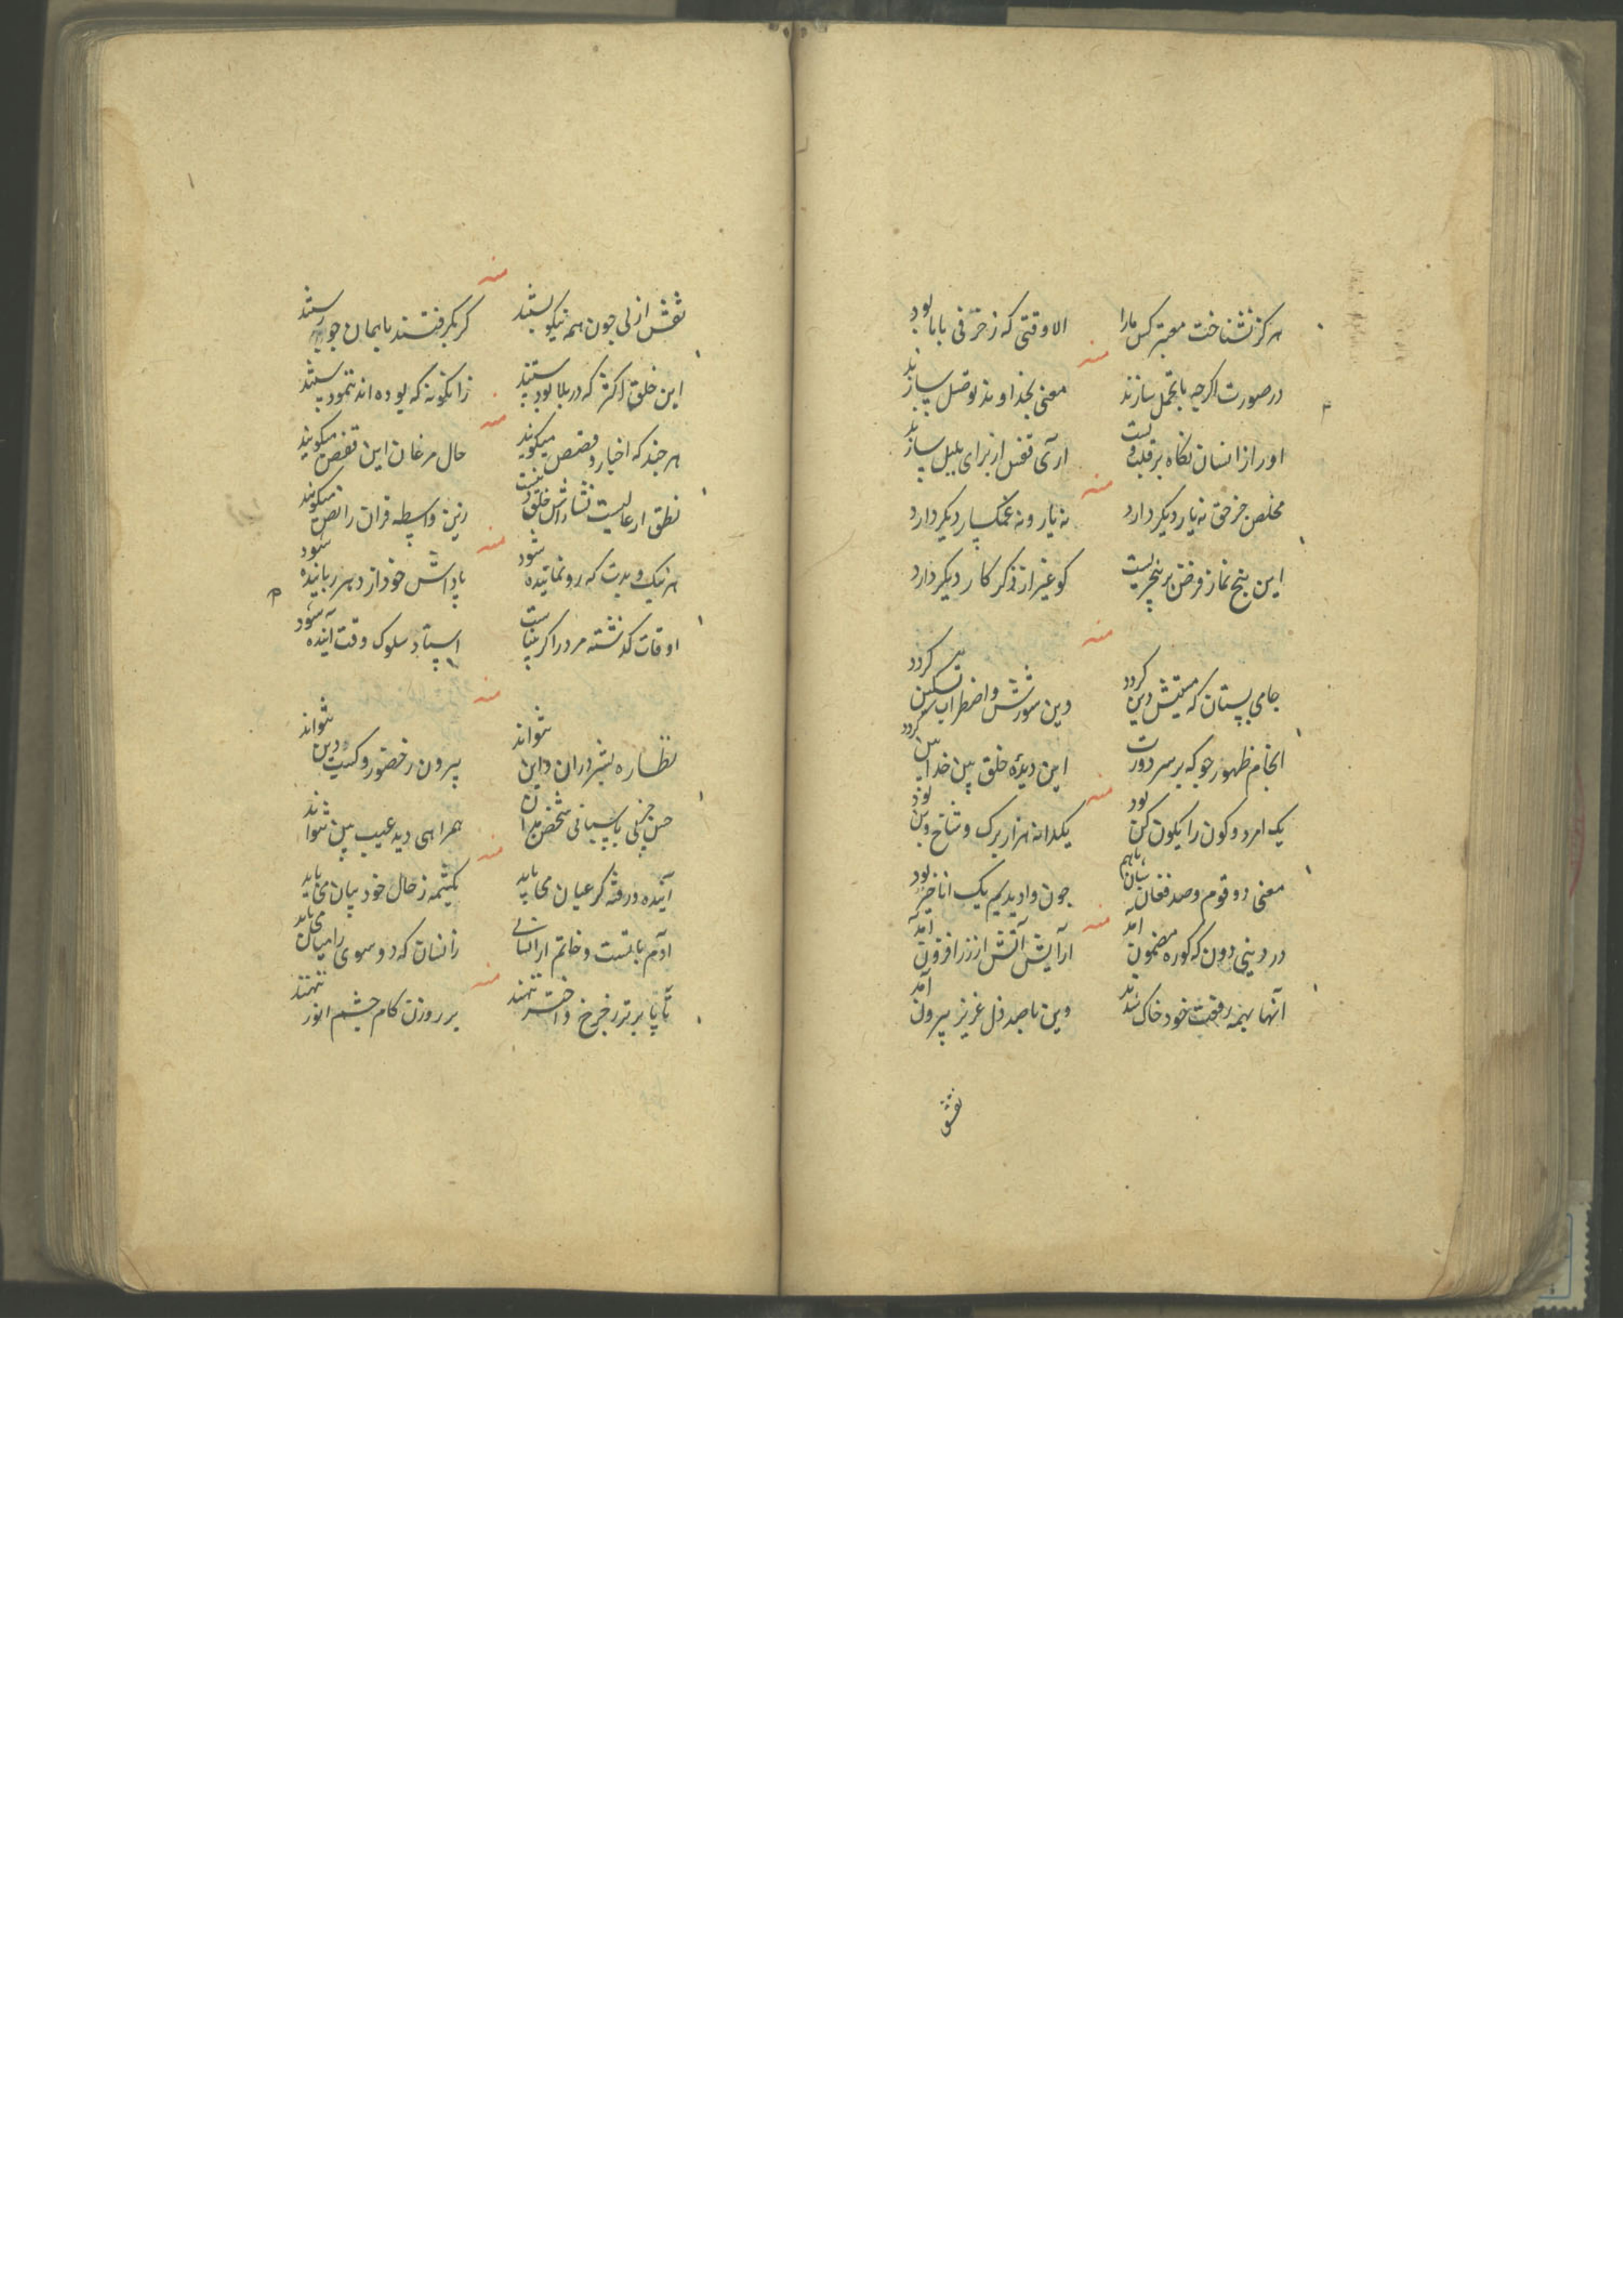 هرکز نشناخت معتبر کس مارا الا وقتی که ز حرفی با ما بود
منه
در صورت اکرچه با تجمل سازند معنی بخداوند توصل سازند
او راز انسان نکاه بر قلب ولیست آری قفس از برای بلبل سازند
منه
مخلص جز حق نه یار دیکر دارد نه یار و نه غمکسار دیکر دارد
این پنج نماز فرض بر پنجریست کو غیر از ذکر کار دیکر دارد
منه
جامی بستان که مستیش دین کردد وین شورش و اضطراب تسکین کردد
انجام ظهور جو که بر سر دورت این دیدهٔ خلق بین خدابین کردد
منه
یک امر دو کون را بکون کن بود یکدانه هزار برک و شاخ و بن بود
معنی دو قوم و صد فغان باهم چون وادیدیم یک اناخیر بود
منه
در دینی دون که کوره مضمون آمد آرایش آتش از زر افزون آمد
آنها بهمه رفعت خود خاک شدند وین ناصد دل عزیز بیرون آمد
نقش
منه
نقش ازلی چون همه نیکو بستند کر بکرفتند با بهمان جو رستند
این خلق اکثر که در بلا بودستند زانکونه که بوده اند ننمودستند
منه
هر چند که اخبار و قصص میکویند حال مرغان این قفس میکویند
نطق ار عالیست نشاداش خلق نیست زین واسطه قران را نص میکویند
منه
هر نیک و بدت که رونماینده شود پاداش خود از دهر رباینده شود
اوقات کذشته مرد را کر بیناست استاد سلوک وقت آینده شود
منه
نظاره بشر دران و این نتواند بیرون ز حضور و کیت دین نتواند
حس جزئی پاسبانی شخص بدان همراهی دید عیب بین نتواند
منه
آینده و رفته کر عیان می باید یکشمه ز حال خود بیان می باید
آدم بابتست و خاتم ار انسانی زانسان که دو سوی را میان می باید
منه
تا پا برتر ز چرخ و اختر ننهند بر روزن کام چشم انور ننهند